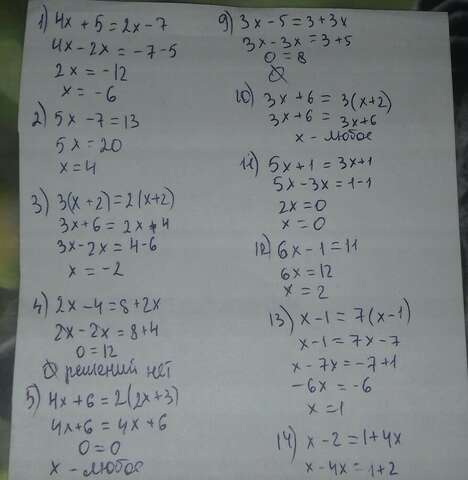 1) 4x + 5 = 2x - 7
4x - 2x = -7 - 5
2x = -12
x = -6
2) 5x - 7 = 13
5x = 20
x = 4
3) 3(x + 2) = 2(x + 2)
3x + 6 = 2x + 4
3x - 2x = 4 - 6
x = -2
4) 2x - 4 = 8 + 2x
2x - 2x = 8 + 4
0 = 12
∅ решений нет
5) 4x + 6 = 2(2x + 3)
4x + 6 = 4x + 6
0 = 0
x - любое
9) 3x - 5 = 3 + 3x
3x - 3x = 3 + 5
0 = 8
∅
10) 3x + 6 = 3(x + 2)
3x + 6 = 3x + 6
x - любое
11) 5x + 1 = 3x + 1
5x - 3x = 1 - 1
2x = 0
x = 0
12) 6x - 1 = 11
6x = 12
x = 2
13) x - 1 = 7(x - 1)
x - 1 = 7x - 7
x - 7x = -7 + 1
-6x = -6
x = 1
14) x - 2 = 1 + 4x
x - 4x = 1 + 2